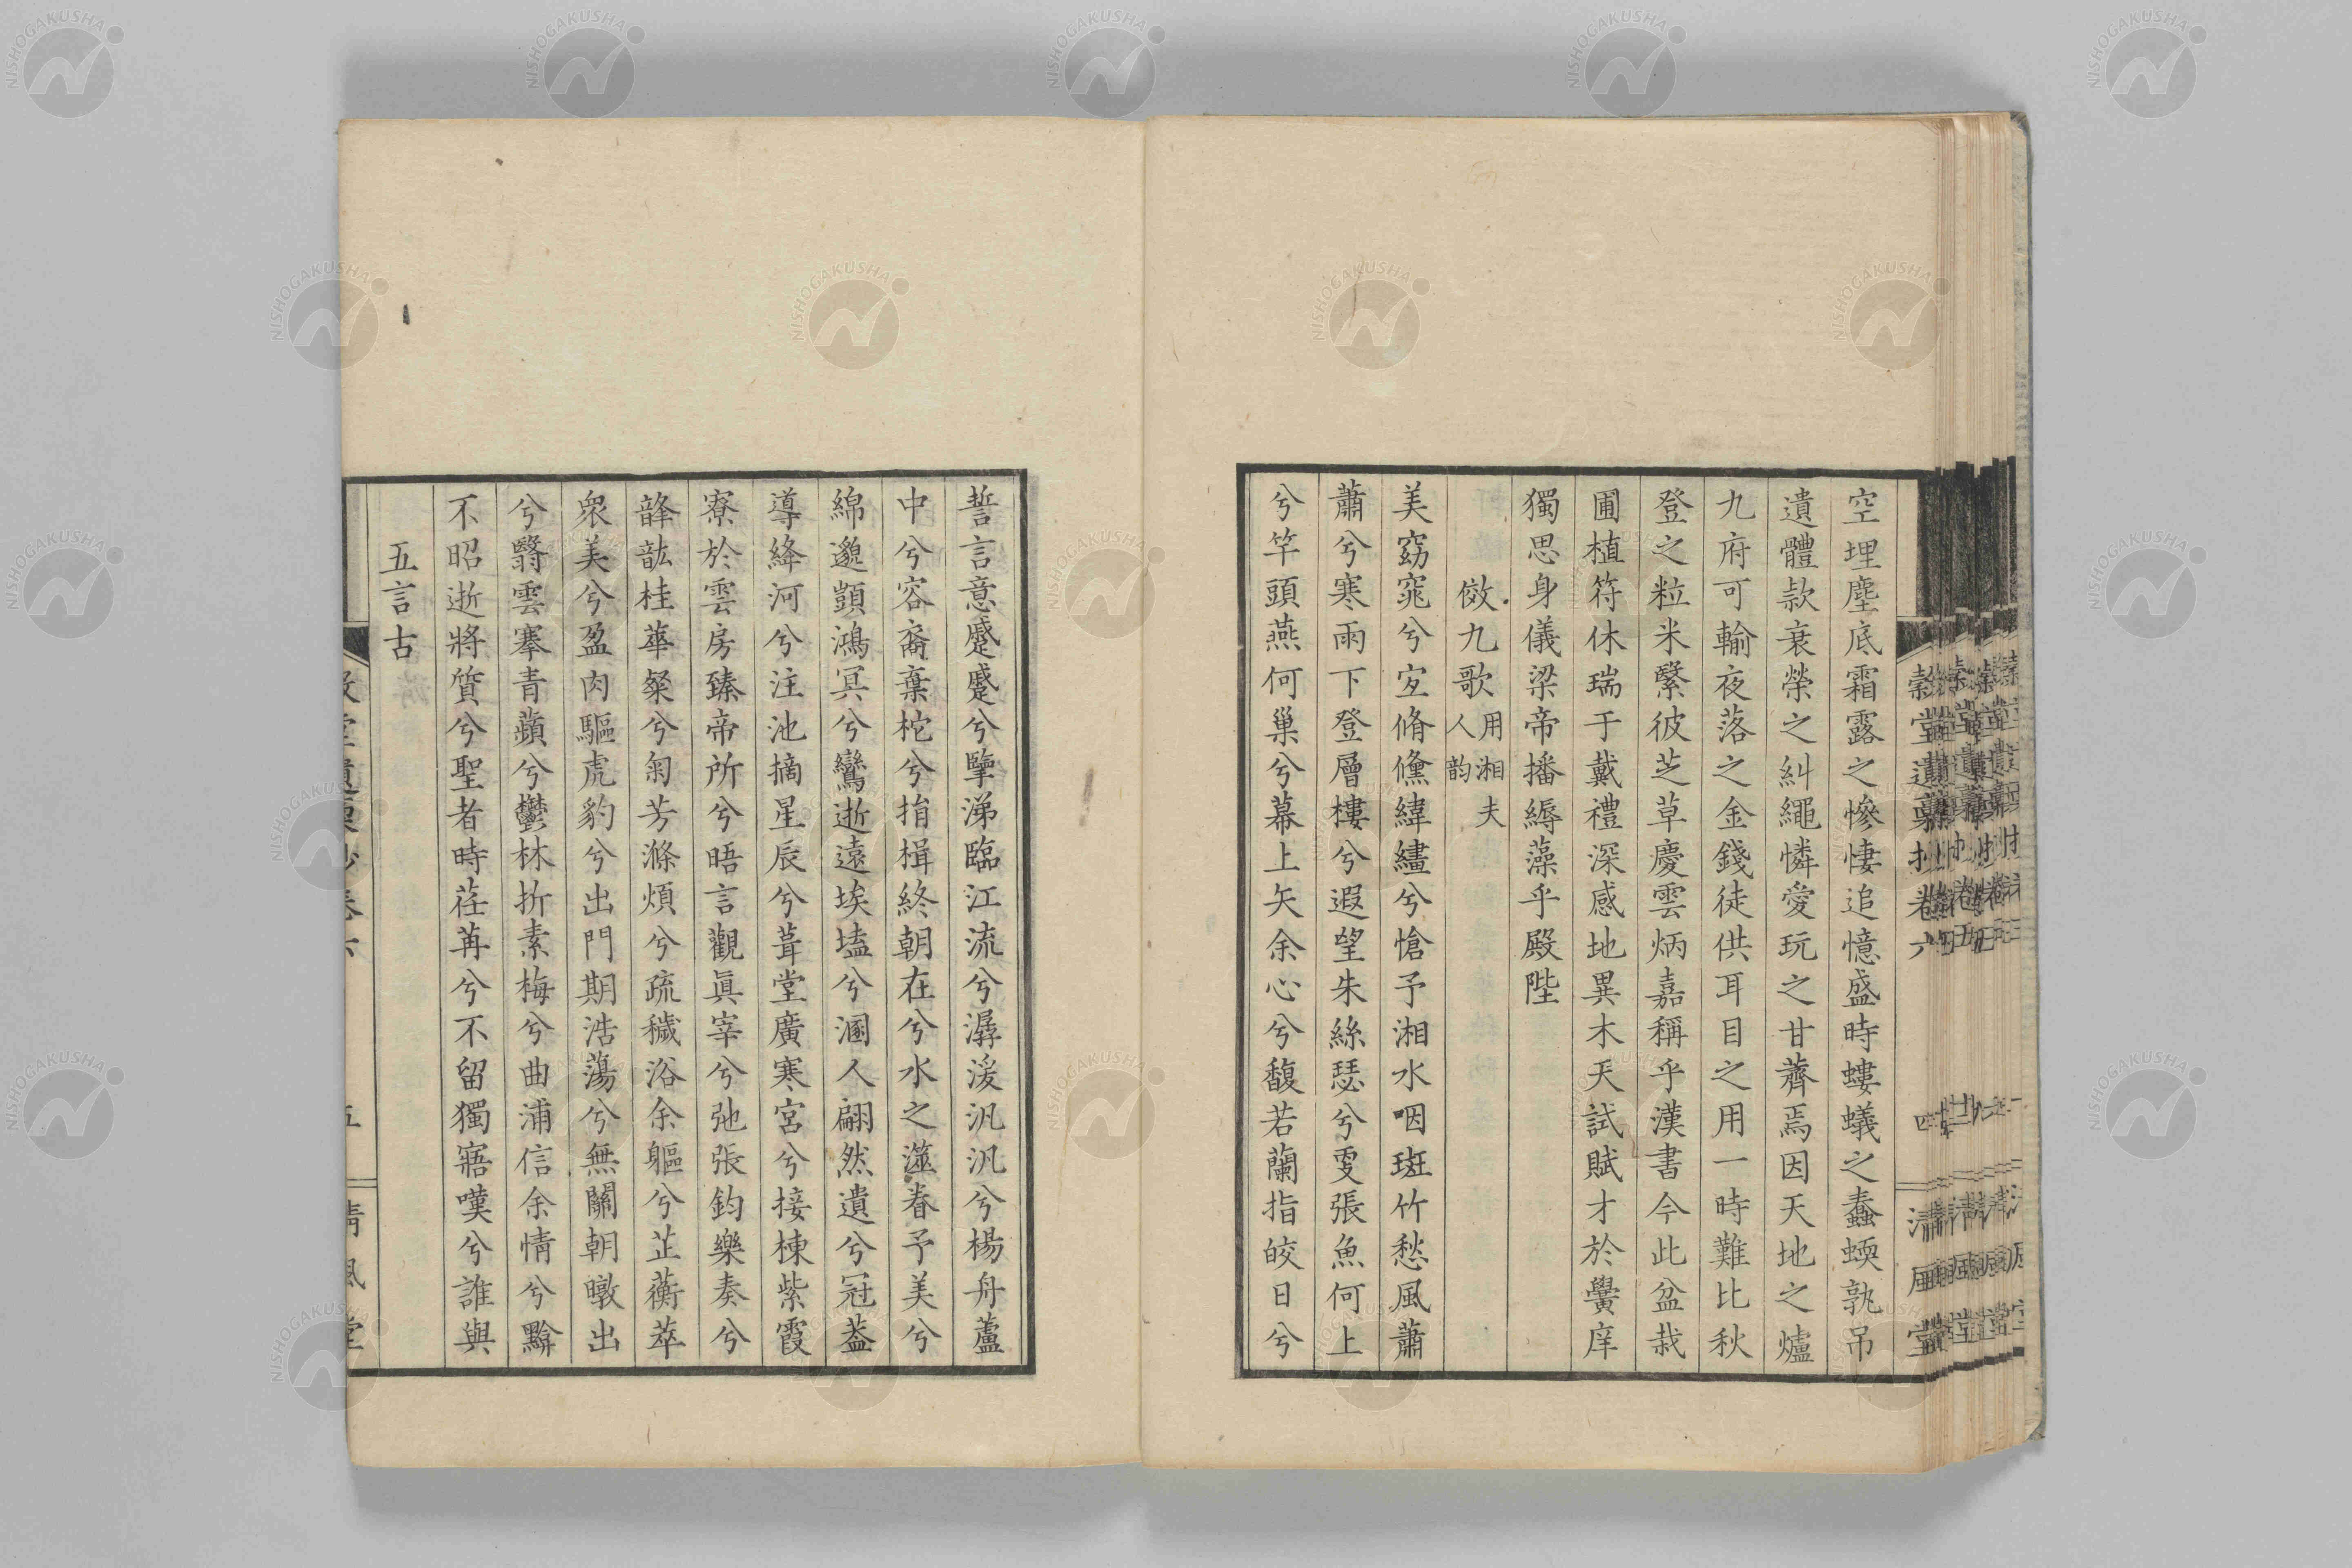 空埋塵底霜露之慘悽追憶盛時螻蟻之蠢蝡孰弔
遺體款衰榮之糾繩憐愛玩之甘薺焉因天地之爐
九府可輸夜落之金錢徒供耳目之用一時難比秋
登之粒米繄彼芝草慶雲炳嘉稱乎漢書今此盆栽
圃植符休瑞于戴禮深感地異木天試賦才於黌庠
獨思身儀梁帝播縟藻乎殿陛
傚九歌用湘夫人韵
美窈窕兮宜脩儵緯繣兮愴予湘水咽斑竹愁風蕭
蕭兮寒雨下登層樓兮遐望朱絲瑟兮雯張魚何上
兮竿頭燕何巢兮幕上矢余心兮馥若蘭指皎日兮
誓言意蹙蹙兮擥涕臨江流兮潺湲汎汎兮楊舟蘆
中兮容裔棄柁兮捐楫終朝在兮水之澨眷予美兮
綿邈顗鴻冥兮鸞逝遠埃壒兮溷人翩然遺兮冠蓋
導絳河兮注池摘星辰兮葺堂廣寒宮兮接棟紫霞
寮於雲房臻帝所兮晤言觀眞宰兮弛張鈞樂奏兮
韸䪫桂華粲兮匊芳滌煩兮疏穢浴余軀兮芷蘅萃
衆美兮盈肉驅虎豹兮出門期浩蕩兮無關朝暾出
兮翳雲搴青蘋兮鬱林折素梅兮曲浦信余情兮黭
不昭逝將質兮聖者時荏苒兮不留獨寤嘆兮誰與
五言古
穀堂遺稾抄卷六
四
清風堂